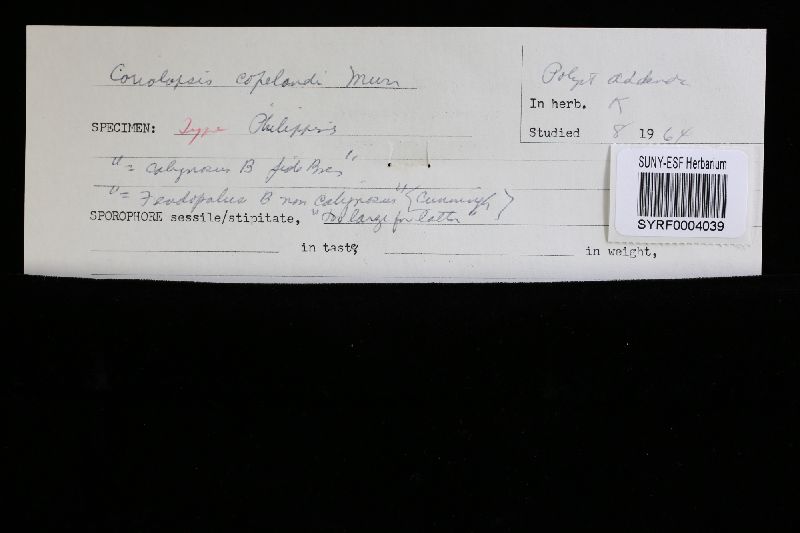 Coriolopsis copelandi Murr
Polyp. addenda
In herb. K
SPECIMEN: Type Philippines
Studied 8 1964
SUNY-ESF Herbarium
SYRF0004039
" = calignosus B fide Bres "
" = B non calignosus " (Cunningh)
SPOROPHORE sessile/stipitate, "Too large for latter"
in taste,
in weight,